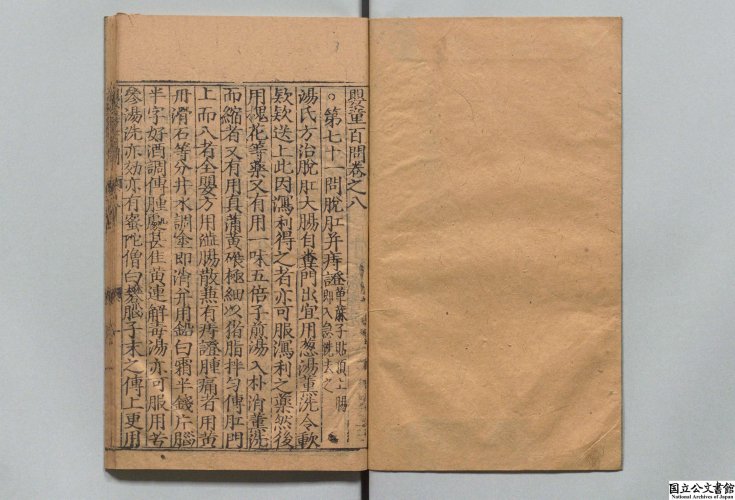 嬰童百問卷之八
○第七十一問脫肛并痔證 萆麻子貼頂上腸即入急洗去之
湯氏方治脫肛大腸自糞門出宜用葱湯熏洗令軟
欵欵送上此因瀉利得之者亦可服瀉利之藥然後
用槐花等藥又有用一味五倍子煎湯入朴消熏洗
而縮者又有用真蒲黄碾極細以猪脂拌勻傅肛門
上而入者全嬰方用澁腸散𠁅有痔證腫痛者用黄
丹滑石等分井水調塗即消并用鉛白霜半錢片腦
半字好酒調傅腫處甚佳黄連解毒湯亦可服用苦
參湯洗亦効亦有蜜陀僧白礬腦子末之傅上更用
国立公文書館
National Archives of Japan